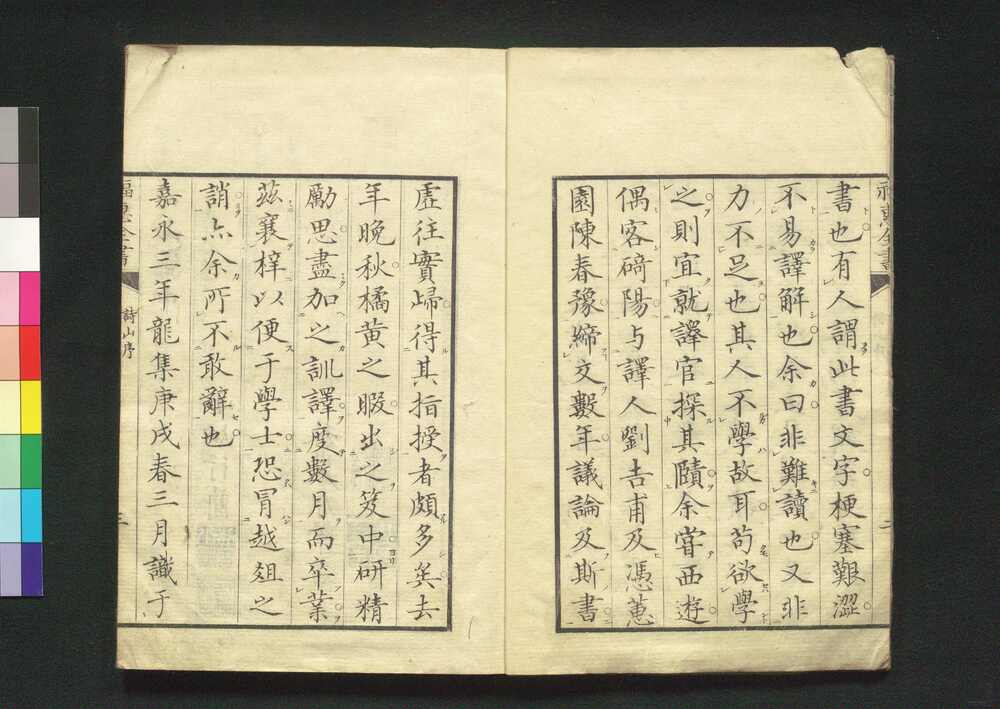 書也有人謂此書文字梗塞艱澀
不易譯解也余曰非難讀也又非
力不足也其人不學故耳苟欲學
之則宜就譯官探其賾余嘗西遊
偶客碕陽与譯人劉吉甫及馮蕙
園陳春豫締文數年議論及斯書
虛往實歸得其指授者頗多矣去
年晚秋橘黃之暇出之笈中研精
勵思盡加之訓譯度數月而卒業
茲襄梓以便于學士恐冒越俎之
誚亦余所不敢辭也
嘉永三年龍集庚戌春三月識于
福惠全書
詩山序